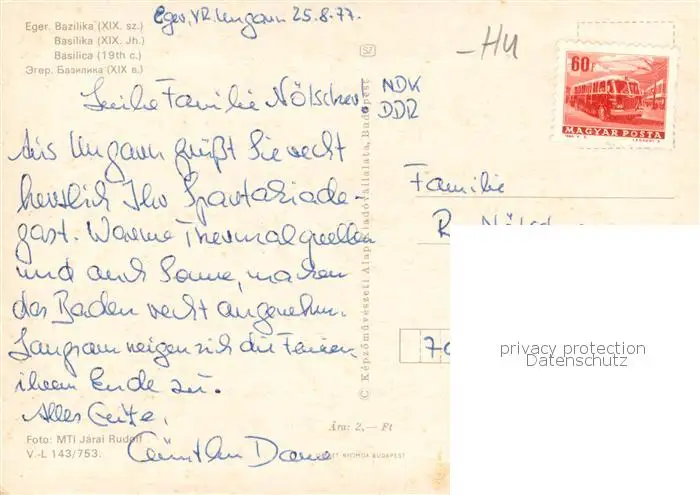 Eger, VR. Ungarn 25.8.77.
Eger. Bazilika (XIX. sz.)
Basilika (XIX. Jh.)
Basilica (19th c.)
Эгер. Базилика (XIX в.)
SZ
-HU
60f
MAGYAR POSTA
Liebe Familie Nötscher!
NDK
DDR
Aus Ungarn grüßt Sie recht
herzlich Ihr Spartakiade-
gast. Warme Thermalquellen
und auch Sonne, machen
das Baden recht angenehm.
Langsam neigen sich die Ferien
ihrem Ende zu.
Alles Gute,
Günther
Familie
R. Nötsch
70
© Képzőművészeti Alap Kiadóvállalata, Budapest
Ára: 2,— Ft
Foto: MTI Járai Rudolf
V.-L 143/753.
NYOMDA BUDAPEST
privacy protection
Datenschutz